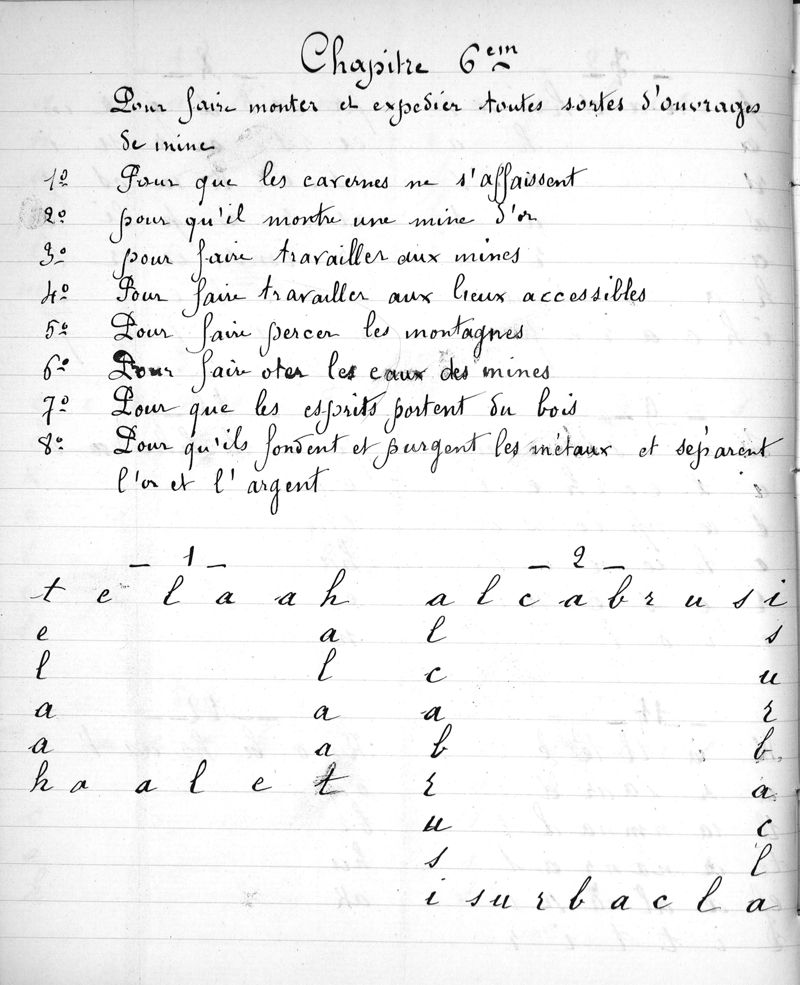 Chapitre 6em
Pour faire monter et expedier toutes sortes d'ouvrages
de mine
1o Pour que les cavernes ne s'affaissent
2o pour qu'il montre une mine d'or
3o pour faire travailler aux mines
4o Pour faire travailler aux lieux accessibles
5o Pour faire percer les montagnes
6o Pour faire oter les eaux des mines
7o Pour que les esprits portent du bois
8o Pour qu'ils fondent et purgent les métaux et séparent
l'or et l'argent
_ 1 _ _ 2 _
t e l a a h a l c a b r u s i
e a l s
l l c u
a a a r
a a b b
h a a l e t r a
u c
s l
i s u r b a c l a